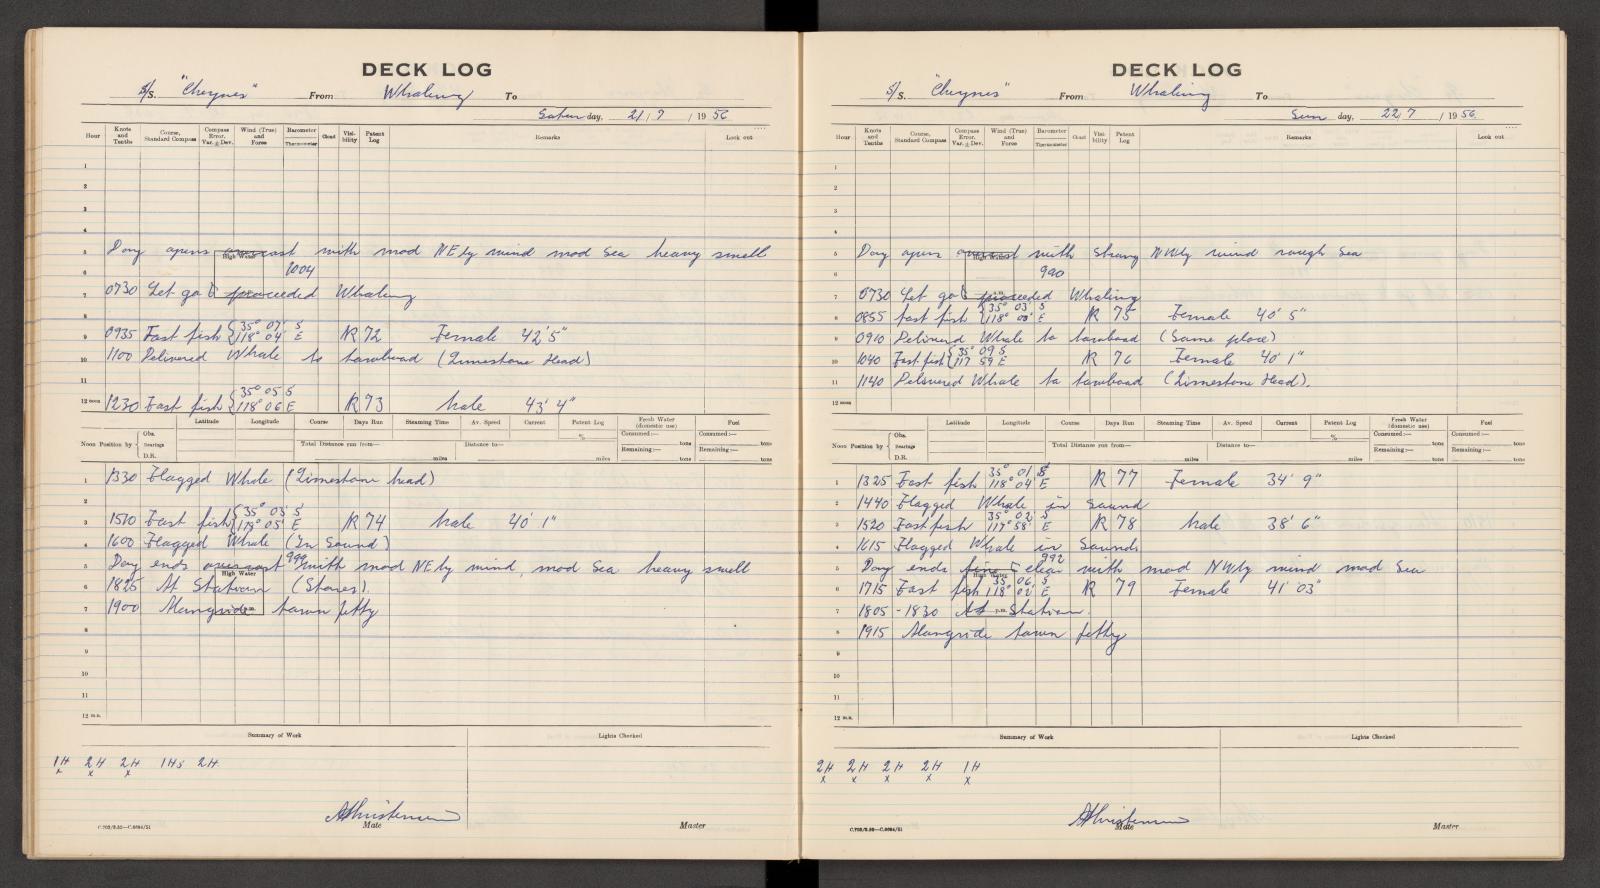 DECK LOG
S/S. "Cheynes" From Whaling To
Saturday, 21/7/1956
Hour Knots and Tenths Course, Standard Compass Compass Error, Var. ± Dev. Wind (True) and Force Barometer Thermometer Cloud Visibility Patent Log Remarks Look out
1
2
3
4
5 Day opens overcast with mod NEly wind mod sea heavy swell
High Water
6 1004
7 0730 Let go & proceeded Whaling
8
9 0935 Fast fish { 35° 07' S 118° 04' E R 72 Female 42' 5"
10 1100 Delivered Whale to towboat (Limestone Head)
11
12 noon 1230 Fast fish { 35° 05 S 118° 06 E R 73 Male 43' 4"
Latitude Longitude Course Days Run Steaming Time Av. Speed Current Patent Log Fresh Water (domestic use) Fuel
Noon Position by { Obs. Bearings D.R. Total Distance run from— miles Distance to— miles % Consumed:— tons Remaining:— tons Consumed:— tons Remaining:— tons
1 1330 Flagged Whale (Limestone head)
2
3 1510 Fast fish { 35° 03' S 118° 05' E R 74 Male 40' 1"
4 1600 Flagged Whale (In Sound)
5 Day ends overcast 999 with mod NEly wind, mod sea heavy swell
High Water
6 1825 At Station (Stores).
7 1900 Alongside town jetty
p.m.
8
9
10
11
12 m.n.
Summary of Work Lights Checked
1H 2H 2H 1Hs 2H
x x x
AChristensen
Mate Master
DECK LOG
S/S. "Cheynes" From Whaling To
Sunday, 22/7/1956
Hour Knots and Tenths Course, Standard Compass Compass Error, Var. ± Dev. Wind (True) and Force Barometer Thermometer Cloud Visibility Patent Log Remarks Look out
1
2
3
4
5 Day opens overcast with strong NWly wind rough sea
High Water
6 990
7 0730 Let go & proceeded Whaling
a.m.
8 0855 Fast fish { 35° 03' S 118° 08' E R 75 Female 40' 5"
9 0910 Delivered Whale to towboat (Same place)
10 1040 Fast fish { 35° 09 S 117 59 E R 76 Female 40' 1"
11 1140 Delivered Whale to towboat (Limestone Head).
12 noon
Latitude Longitude Course Days Run Steaming Time Av. Speed Current Patent Log Fresh Water (domestic use) Fuel
Noon Position by { Obs. Bearings D.R. Total Distance run from— miles Distance to— miles % Consumed:— tons Remaining:— tons Consumed:— tons Remaining:— tons
1 1325 Fast fish 35° 01' S 118° 04' E R 77 Female 34' 9"
2 1440 Flagged Whale in Sound
3 1520 Fast fish 35° 02' S 117° 58' E R 78 Male 38' 6"
4 1615 Flagged Whale in Sound
5 Day ends fine & clear 992 with mod NWly wind mod sea
High Water
6 1715 Fast fish 35° 06' S 118° 02' E R 79 Female 41' 03"
7 1805 - 1830 At Station.
p.m.
8 1915 Alongside town jetty
9
10
11
12 m.n.
Summary of Work Lights Checked
2H 2H 2H 2H 1H
x x x x x
AChristensen
Mate Master